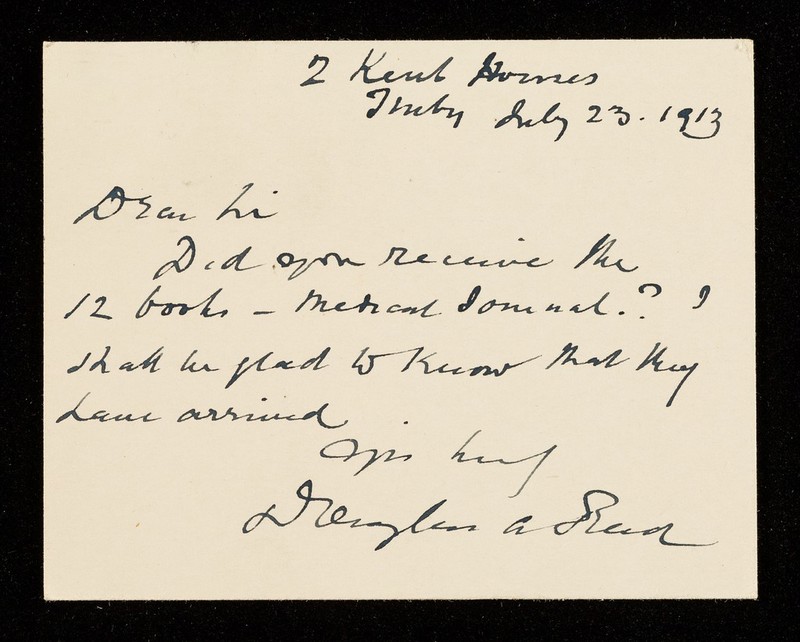 2 Kent Houses
Tenby July 23. 1913
Dear Sir
Did you receive the
12 books – Medical Journal.? I
shall be glad to know that they
have arrived
Yrs truly
Douglas A Reid